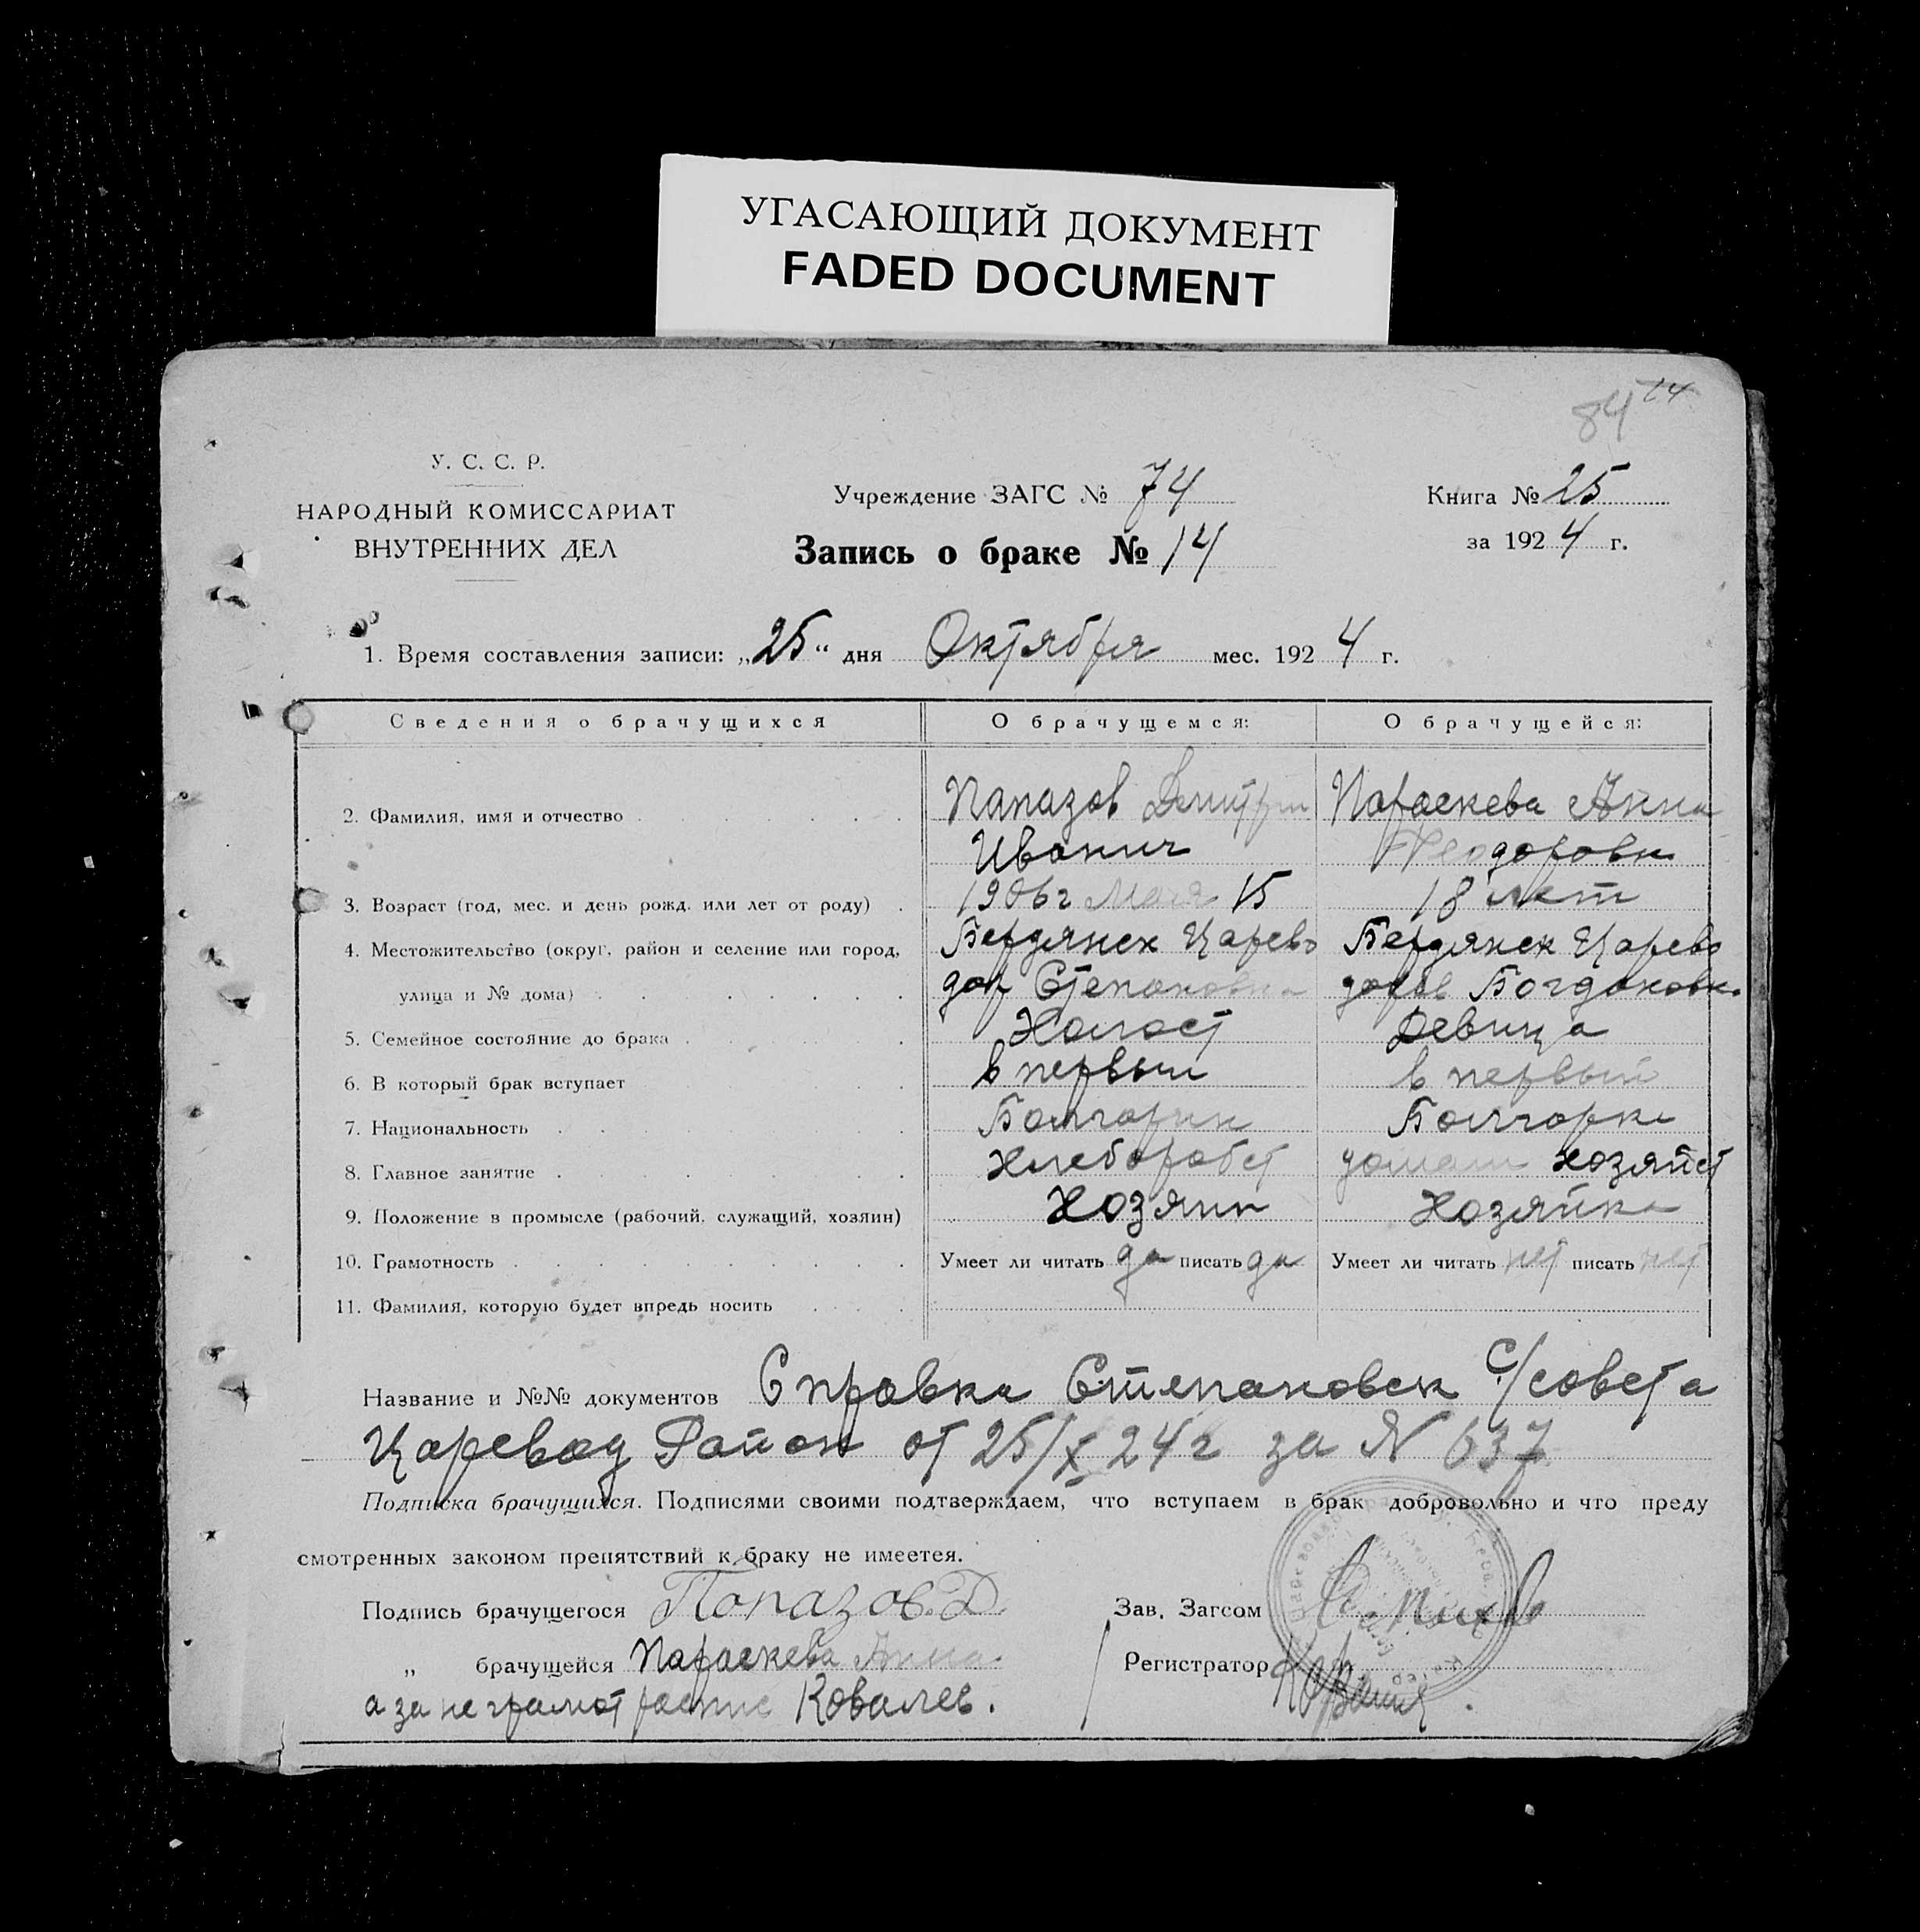 УГАСАЮЩИЙ ДОКУМЕНТ
FADED DOCUMENT
84 14
У. С. С. Р.
НАРОДНЫЙ КОМИССАРИАТ
ВНУТРЕННИХ ДЕЛ
Учреждение ЗАГС № 74
Запись о браке № 14
Книга № 25
за 1924 г.
1. Время составления записи: „25“ дня Октября мес. 1924 г.
Сведения о брачущихся О брачущемся: О брачущейся:
2. Фамилия, имя и отчество Папазов Дмитрий Параскева Анна
Иванич Феодоровн
3. Возраст (год, мес. и день рожд. или лет от роду) 1906 г Мая 15 18 лет
4. Местожительство (округ, район и селение или город, Бердянск Царево Бердянск Царево
улица и № дома) дар Степановка даров Богдановк
5. Семейное состояние до брака Холост Девица
6. В который брак вступает в первый в первый
7. Национальность Болгарин Болгарка
8. Главное занятие Хлеборобст домаш хозяйст
9. Положение в промысле (рабочий, служащий, хозяин) Хозяин Хозяйка
10. Грамотность Умеет ли читать да писать да Умеет ли читать нет писать нет
11. Фамилия, которую будет впредь носить
Название и №№ документов Справка Степановск с/совета
Царевод Район от 25/X 24 г за N 637
Подписка брачущихся. Подписями своими подтверждаем, что вступаем в брак добровольно и что преду
смотренных законом препятствий к браку не имеетея.
Подпись брачущегося Попазов. Д. Зав. Загсом
„ брачущейся Параскева Анна. Регистратор
а за не грамот распис Ковалев.